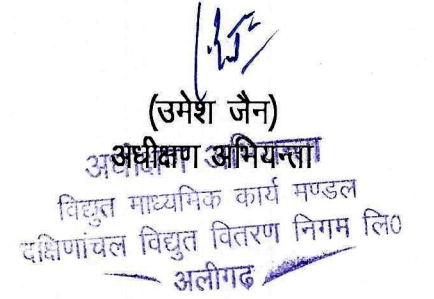 (उमेश जैन)
अधीक्षण अभियन्ता
अधीक्षण अभियन्ता
विद्युत माध्यमिक कार्य मण्डल
दक्षिणांचल विद्युत वितरण निगम लि0
अलीगढ़